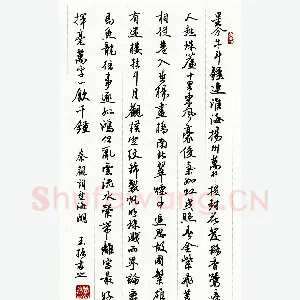 星分牛斗疆連淮海揚州萬井提封花發路香鶯啼
人起珠簾十里東風豪俊氣如虹曳照春金紫飛蓋
相從巷入垂楊畫橋南北翠煙中追思故國繁雄
有迷樓挂斗月觀橫空紋錦製帆明珠濺雨寧論爵
馬魚龍往事逐孤鴻但亂雲流水縈帶離宮最好
揮毫萬字一飲千鍾
秦觀詞望海潮
Shufawang.CN